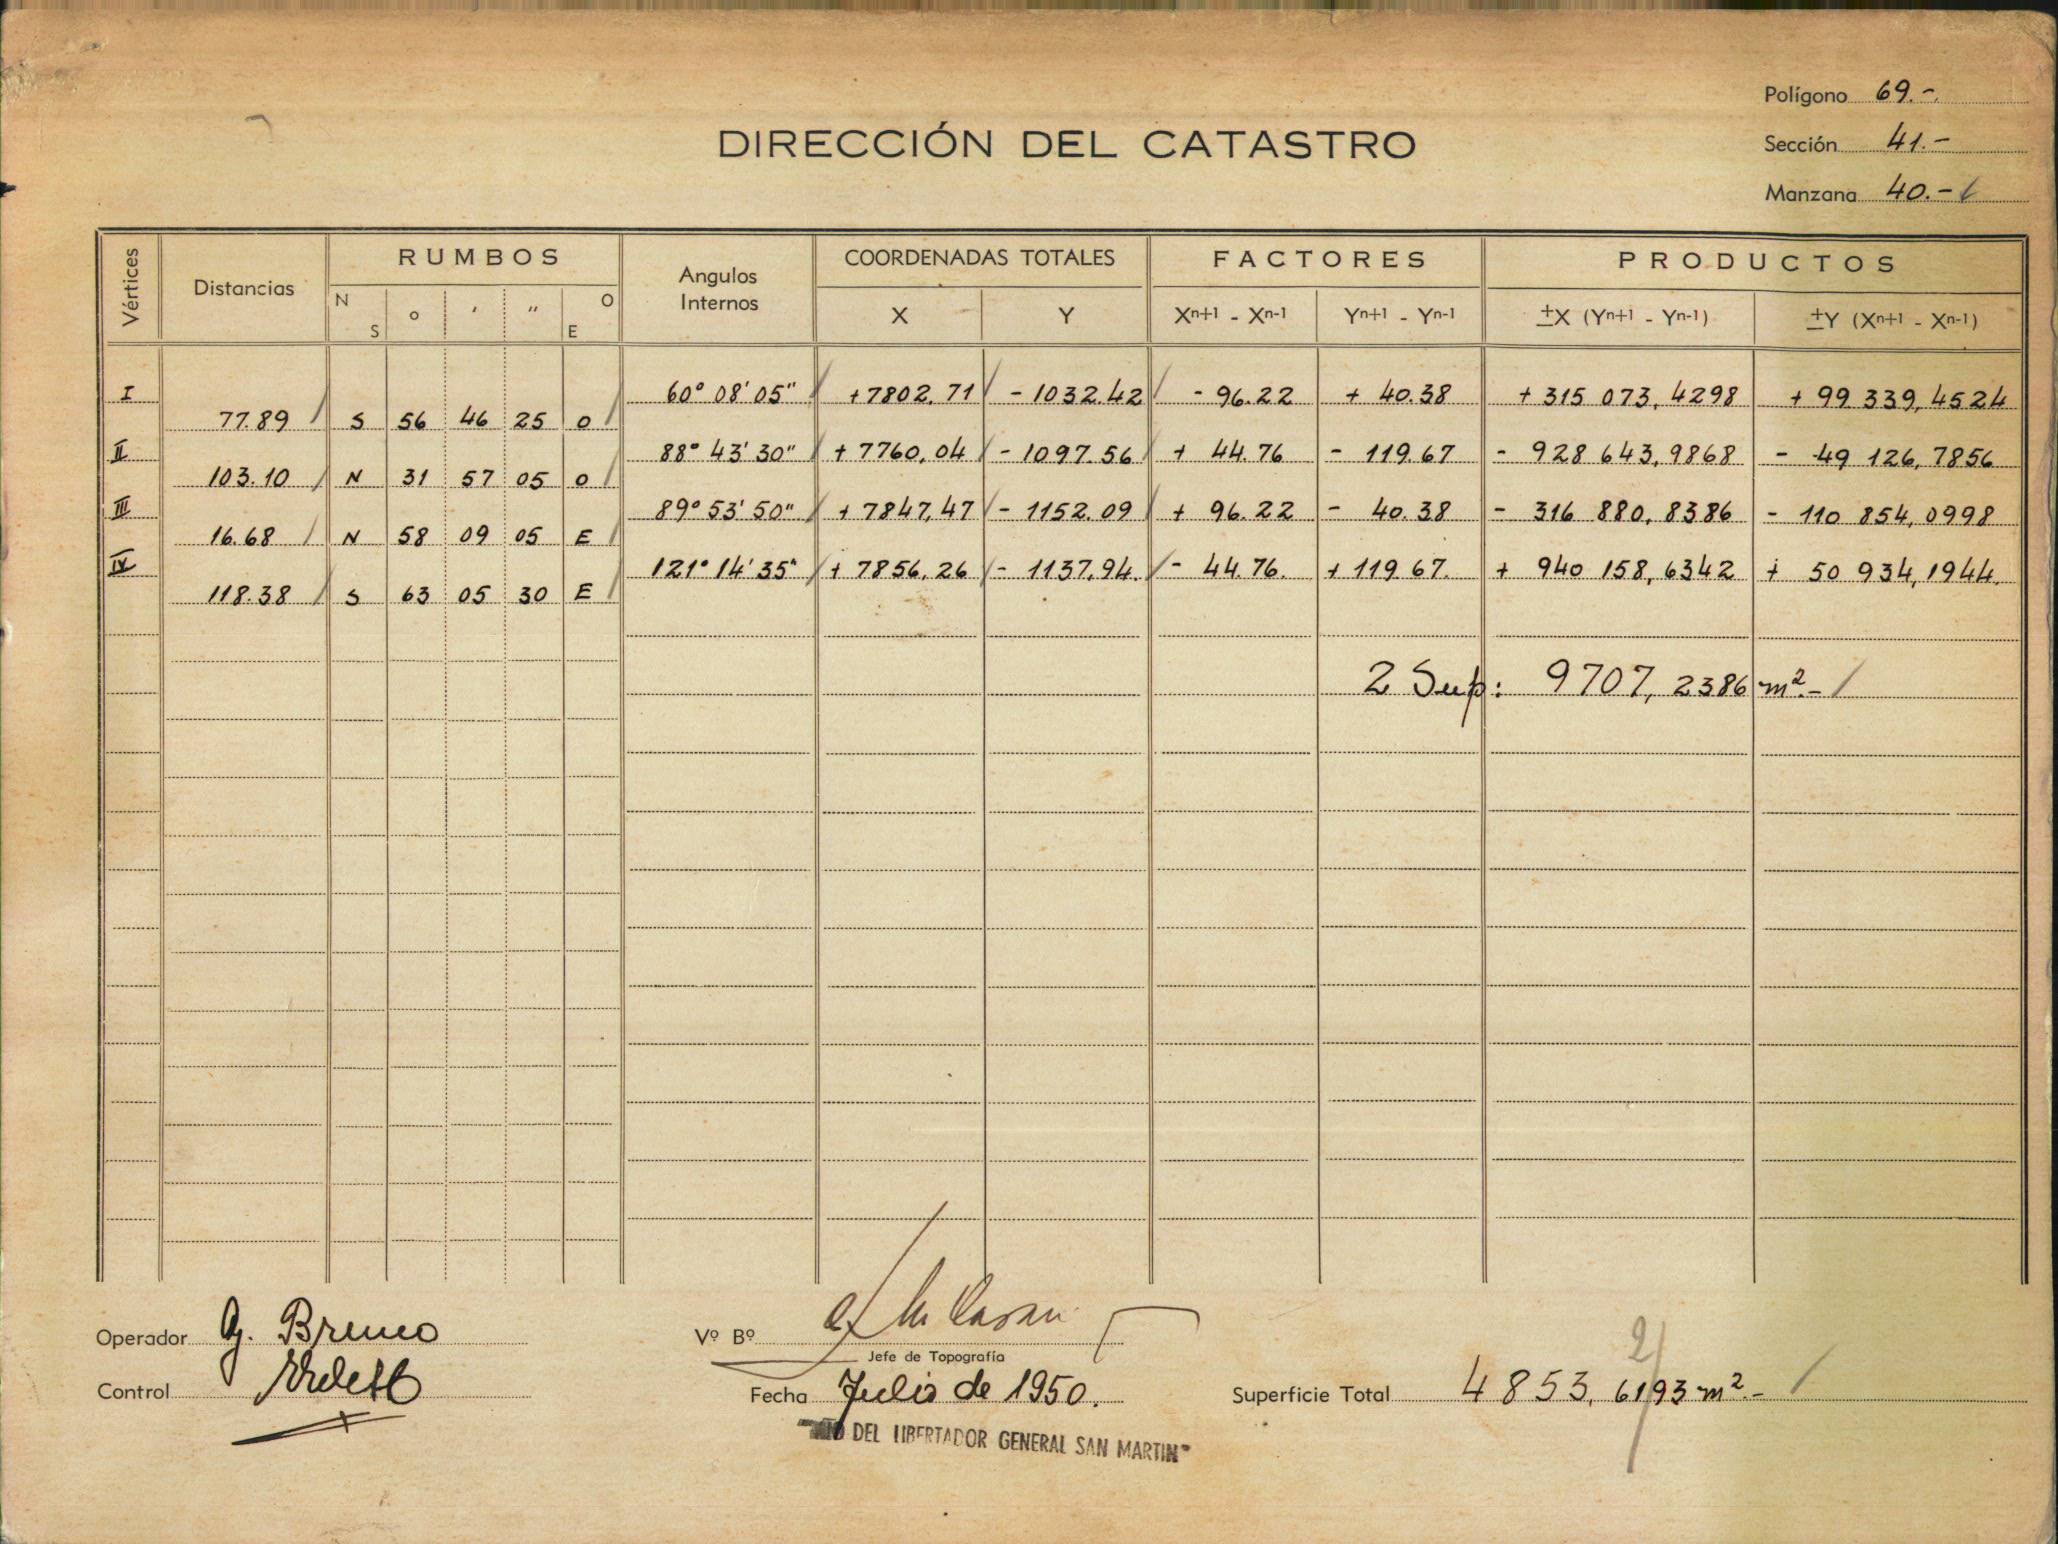 Polígono 69.-
DIRECCIÓN DEL CATASTRO
Sección 41.-
Manzana 40.-
Vértices Distancias RUMBOS Angulos Internos COORDENADAS TOTALES FACTORES PRODUCTOS
N S o ′ ″ O E X Y Xn+1 - Xn-1 Yn+1 - Yn-1 ±X (Yn+1 - Yn-1) ±Y (Xn+1 - Xn-1)
I 60° 08' 05" +7802.71 - 1032.42 - 96.22 + 40.38 + 315 073,4298 + 99 339,4524
77.89 S 56 46 25 O
II 88° 43' 30" + 7760,04 - 1097.56 + 44.76 - 119.67 - 928 643,9868 - 49 126,7856
103.10 N 31 57 05 O
III 89° 53' 50" + 7847,47 - 1152.09 + 96.22 - 40.38 - 316 880,8386 - 110 854,0998
16.68 N 58 09 05 E
IV 121° 14' 35" + 7856,26 - 1137,94. - 44.76. + 119.67. + 940 158,6342 + 50 934,1944.
118.38 S 63 05 30 E
2 Sup: 9707,2386 m².-
Operador Bruno
Vº Bº
Jefe de Topografía
Control
Fecha Julio de 1950.
Superficie Total 4853,6193 m².-
2
DEL LIBERTADOR GENERAL SAN MARTIN"